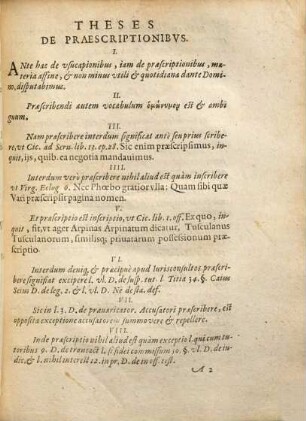 THESES
DE PRAESCRIPTIONIBVS.
I.
ANte hac de vsucapionibus, iam de præscriptionibus, ma-
teria affine, & non minus vtili & quotidiana dante Domi-
no, disputabimus.
II.
Præscribendi autem vocabulum ὁμώνυμον est & ambi
guum.
III.
Nam præscribere interdum significat antè seu prius scribe-
re, vt Cic. ad Seru. lib. 13. ep. 28. Sic enim præscripsimus, in-
quit, ijs, quib. ea negotia mandauimus.
IIII.
Interdum verò præscribere nihil aliud est quàm inscribere
vt Virg. Eclog 6. Nec Phœbo gratior vlla: Quam sibi quæ
Vari præscripsit pagina nomen.
V.
Et præscriptio est inscriptio, vt Cic. lib. 1. off. Ex quo, in-
quit, fit, vt ager Arpinas Arpinatum dicatur, Tusculanus
Tusculanorum, similisq; priuatarum possessionum præ-
scriptio.
VI.
Interdum deniq; & præcipuè apud Iurisconsultos præscri-
bere significat excipere l. vl. D. de sup. tut. l. Titia 34. §. Caius
Seius D. de leg. 2. & l. vl. D. Ne de sta. def.
VII.
Sic in l. 3. D. de præuaricator. Accusatori præscribere, est
opposita exceptione accusatorem summouere & repellere.
VIII.
Inde præscriptio nihil aliud est quàm exceptio l. qui cum tu-
toribus 9. D. de transact l. si fidei commissum 50. §. vl. D. de iu-
dic. & l. nihil interest 12. in pr. D. de inoff. test.
A 2